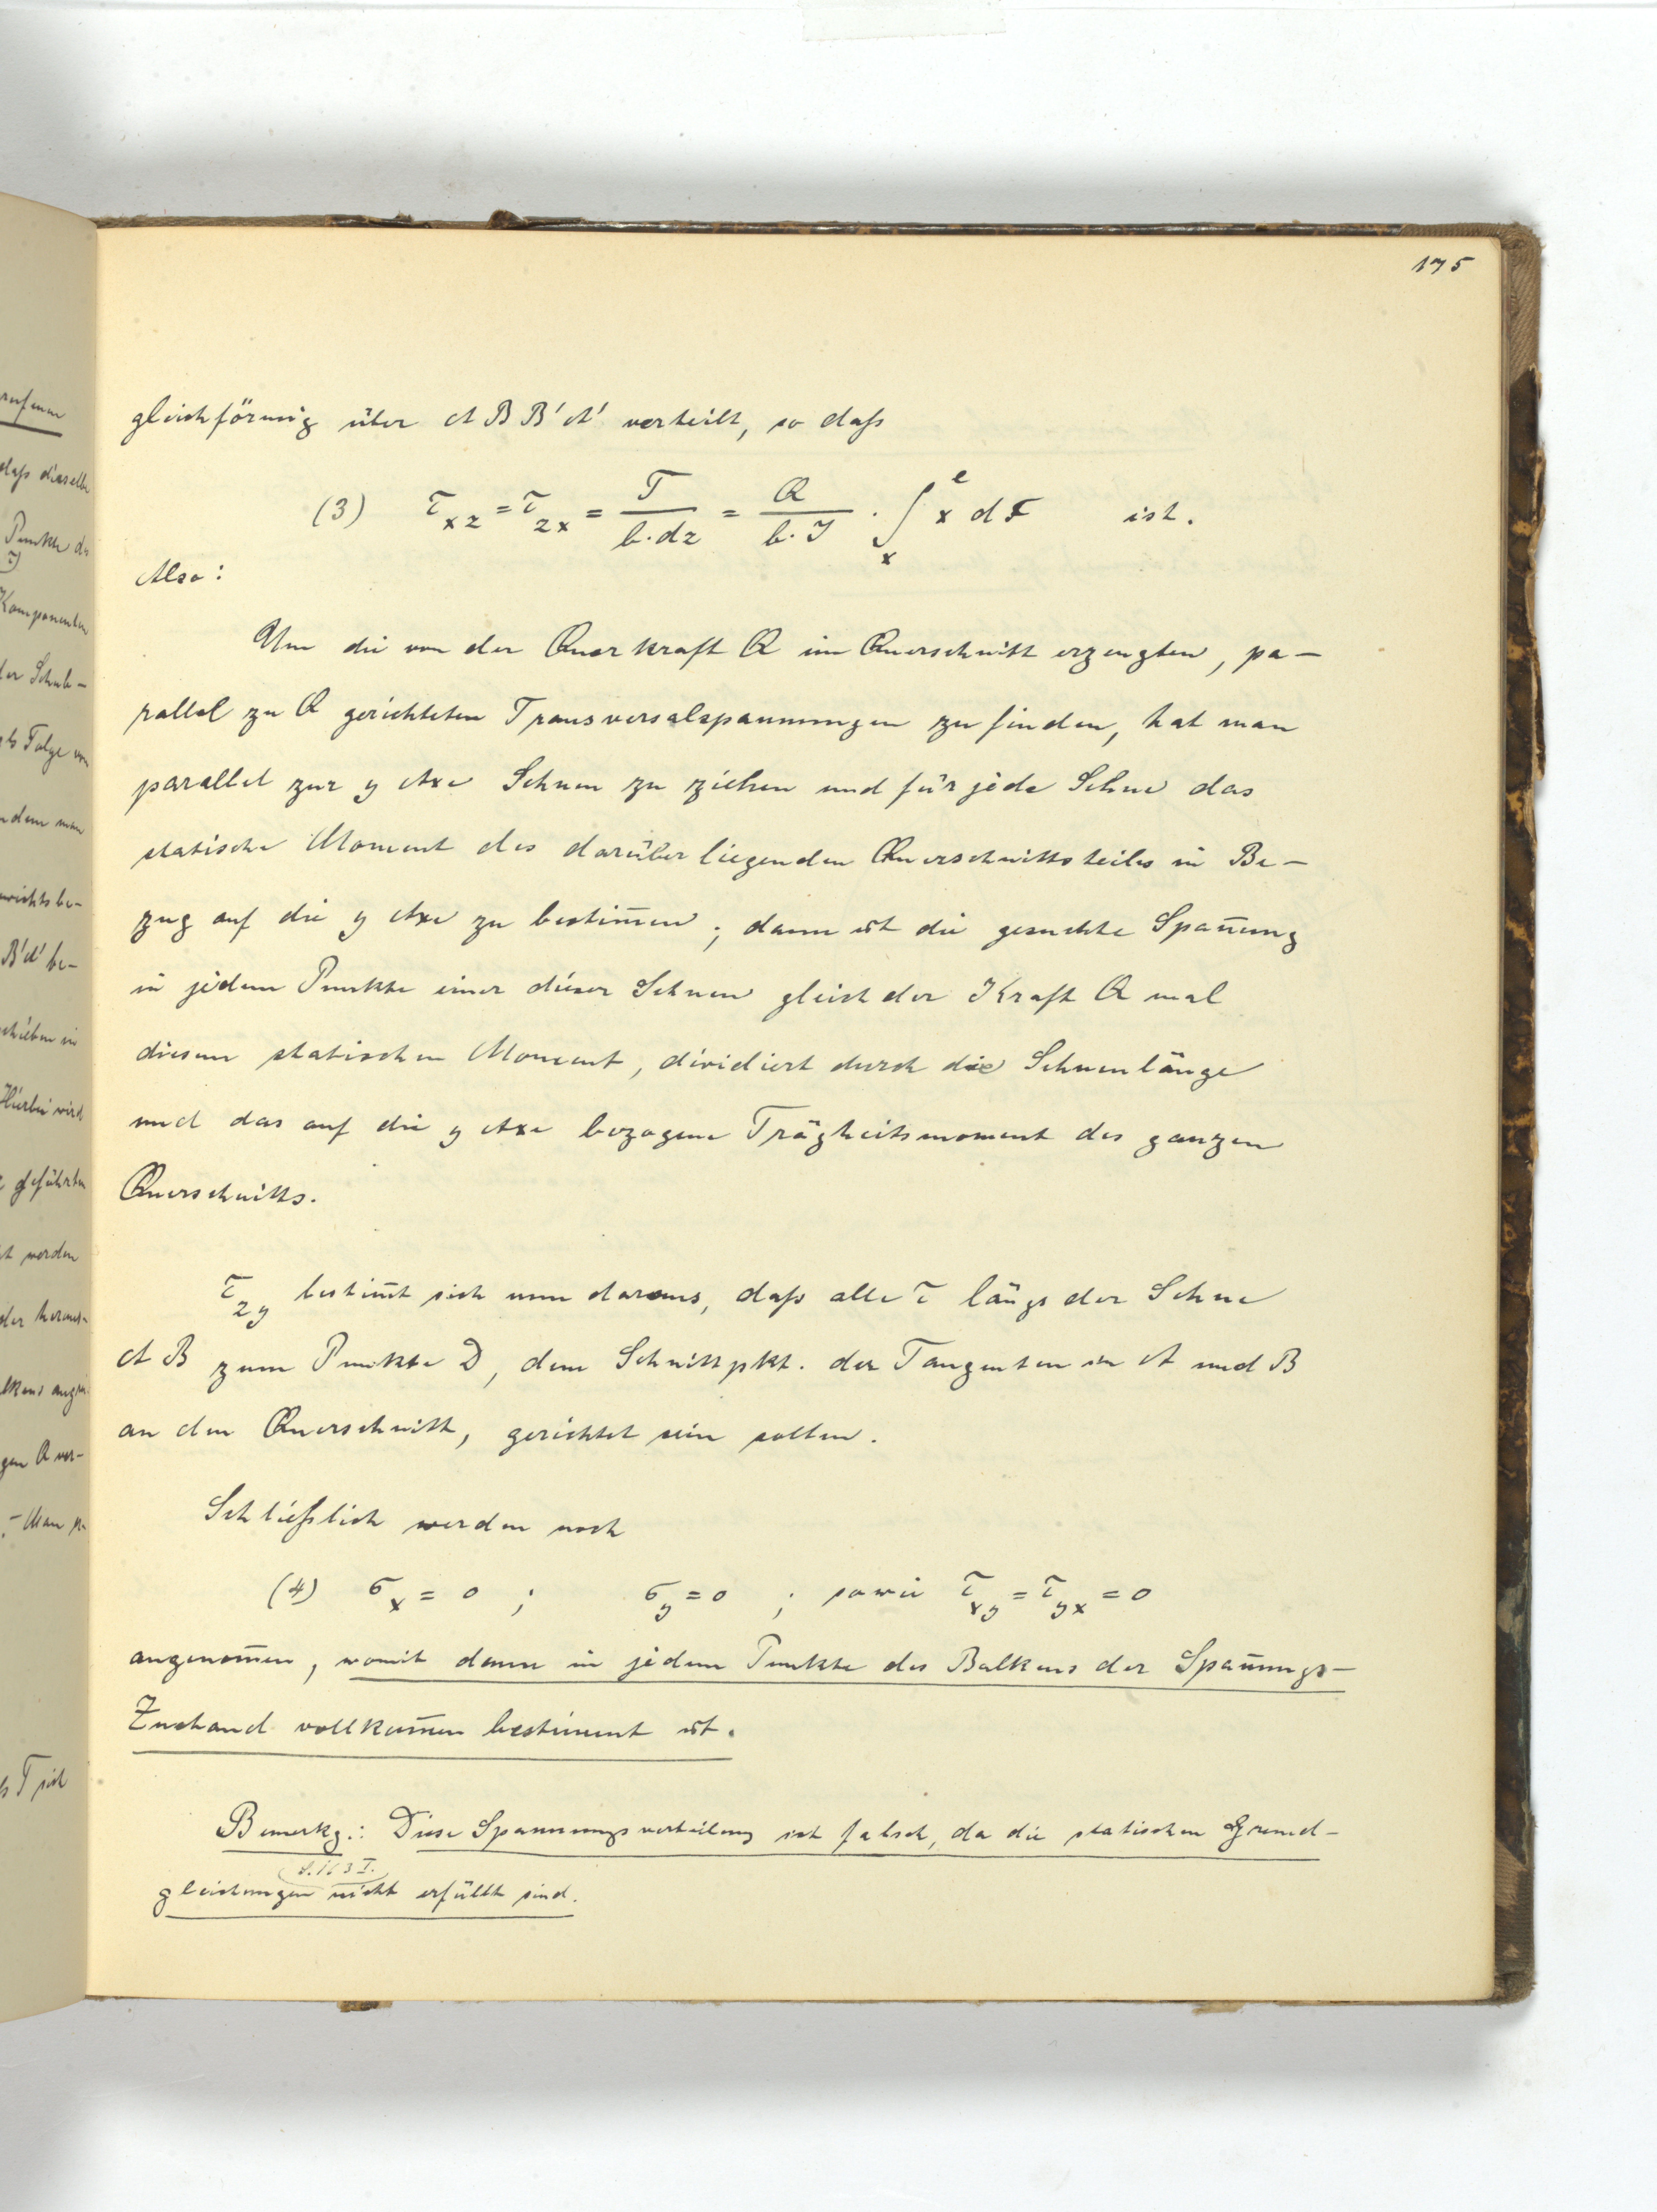 175
gleichförmig über A B B' A' verteilt, so daß
(3) τxz = τzx = T / b·dz = Q / b·J · ∫ₓᵉ x dF ist.
Also:
Um die von der Querkraft Q im Querschnitt erzeugten, pa-
rallel zu Q gerichteten Transversalspannungen zu finden, hat man
parallel zur y Axe Sehnen zu ziehen und für jede Sehne das
statische Moment des darüber liegenden Querschnittsteiles in Be-
zug auf die y Axe zu bestim̄en; dann ist die gesuchte Span̄ung
in jedem Punkte einer dieser Sehnen gleich der Kraft Q mal
diesem statischen Moment, dividiert durch die Sehnenlänge
und das auf die y Axe bezogene Trägheitsmoment des ganzen
Querschnitts.
τzy bestim̄t sich nun daraus, daß alle τ längs der Sehne
A B zum Punkte D, dem Schnittpkt. der Tangenten in A und B
an den Querschnitt, gerichtet sein sollen.
Schließlich werden noch
(4) σx = 0 ; σy = 0 ; sowie τxy = τyx = 0
angenom̄en, womit dann in jedem Punkte des Balkens der Span̄ungs-
Zustand vollkom̄en bestimmt ist.
Bemerkg.: Diese Spannungsverteilung ist falsch, da die statischen Grund-
(S. 163 I.)
gleichungen nicht erfüllt sind.
daß dieselbe
Punkte de
Komponenten
der Schub-
ls Folge von
ndem man
wichtsbe-
B'A' be-
Hierbei wird
geführten
t werden
der heraus-
gen Q ver-
- Man
T sich